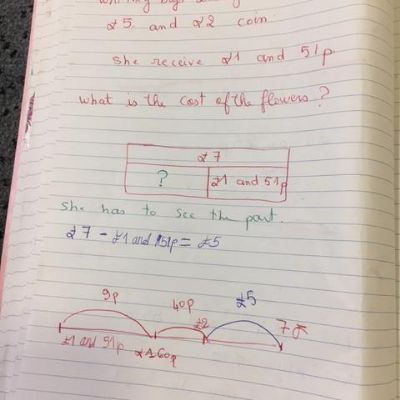 £5 and £2 coin
she receive £1 and 51p
what is the cost of the flowers?
£7
? £1 and 51p
she has to see the part.
£7 - £1 and 51p = £5
9p 40p £5
£1 and 51p £1 60p £2 7£